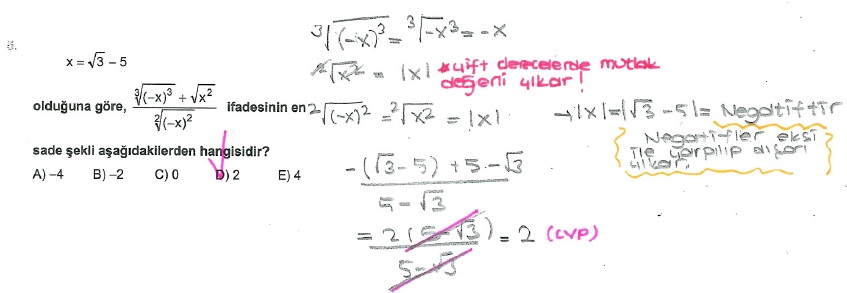 6.
x = √3 - 5
olduğuna göre, (∛(-x)³ + √x²) / ²√(-x)² ifadesinin en
sade şekli aşağıdakilerden hangisidir?
A) -4 B) -2 C) 0 D) 2 E) 4
³√(-x)³ = ³√-x³ = -x
²√x² = |x| *çift derecelerde mutlak
değerli çıkar!
²√(-x)² = ²√x² = |x|
→ |x| = |√3 - 5| = Negatiftir
Negatifler eksi
ile çarpılıp dışarı
çıkar.
-(√3-5) + 5-√3
5-√3
= 2(5-√3) = 2 (CVP)
5-√3